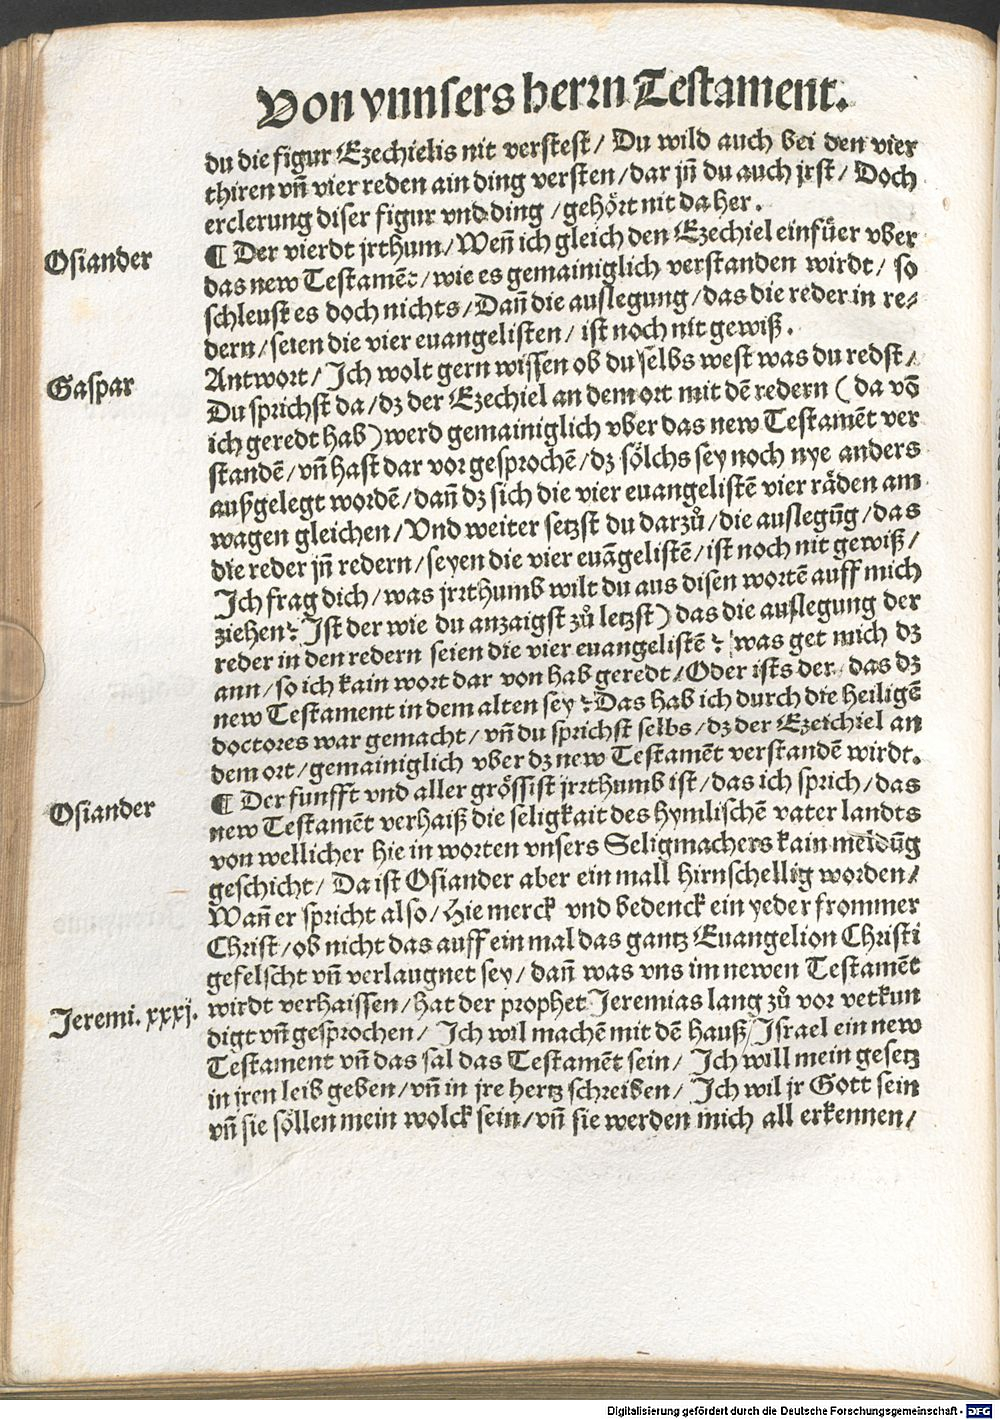 Von vnnsers herrn Testament.
du die figur Ezechielis nit verstest / Du wild auch bei den vier
thiren vñ vier reden ain ding versten / dar jñ du auch jrst / Doch
erclerung diser figur vnd ding / gehört nit da her.
Osiander
¶ Der vierdt jrthum / Weñ ich gleich den Ezechiel einfüer vber
das new Testamẽt / wie es gemainiglich verstanden wirdt / so
schleust es doch nichts / Dañ die auslegung / das die reder in re⸗
dern / seien die vier euangelisten / ist noch nit gewiß.
Gaspar
Antwort / Ich wolt gern wissen ob du selbs west was du redst /
Du sprichst da / dz der Ezechiel an dem ort mit dẽ redern ( da võ
ich geredt hab ) werd gemainiglich vber das new Testamẽt ver
standẽ / vñ hast dar vor gesprochẽ / dz sölchs sey noch nye anders
außgelegt wordẽ / dañ dz sich die vier euangelistẽ vier räden am
wagen gleichen / Vnd weiter setzst du darzů / die auslegũg / das
die reder jñ redern / seyen die vier euãgelistẽ / ist noch nit gewiß /
Ich frag dich / was jrrthumb wilt du aus disen wortẽ auff mich
ziehen? Ist der wie du anzaigst zů letzst ) das die auslegung der
reder in den redern seien die vier euangelistẽ? was get mich dz
ann / so ich kain wort dar von hab geredt / Oder ists der / das dz
new Testament in dem alten sey? Das hab ich durch die heiligẽ
doctores war gemacht / vñ du sprichst selbs / dz der Ezeichiel an
dem ort / gemainiglich vber dz new Testamẽt verstandẽ wirdt.
Osiander
¶ Der funfft vnd aller grössist jrrthumb ist / das ich sprich / das
new Testamẽt verhaiß die seligkait des hymlischẽ vater landts
von wellicher hie in worten vnsers Seligmachers kain meldũg
geschicht / Da ist Osiander aber ein mall hirnschellig worden /
Wañ er spricht also / Hie merck vnd bedenck ein yeder frommer
Christ / ob nicht das auff ein mal das gantz Euangelion Christi
gefelscht vñ verlaugnet sey / dañ was vns im newen Testamẽt
Jeremi. xxxj.
wirdt verhaissen / hat der prophet Jeremias lang zů vor vetkun
digt vñ gesprochen / Ich wil machẽ mit dẽ hauß Israel ein new
Testament vñ das sal das Testamẽt sein / Ich will mein gesetz
in jren leib geben / vñ in jre hertz schreiben / Ich wil jr Gott sein
vñ sie söllen mein wolck sein / vñ sie werden mich all erkennen /
Digitalisierung gefördert durch die Deutsche Forschungsgemeinschaft - DFG